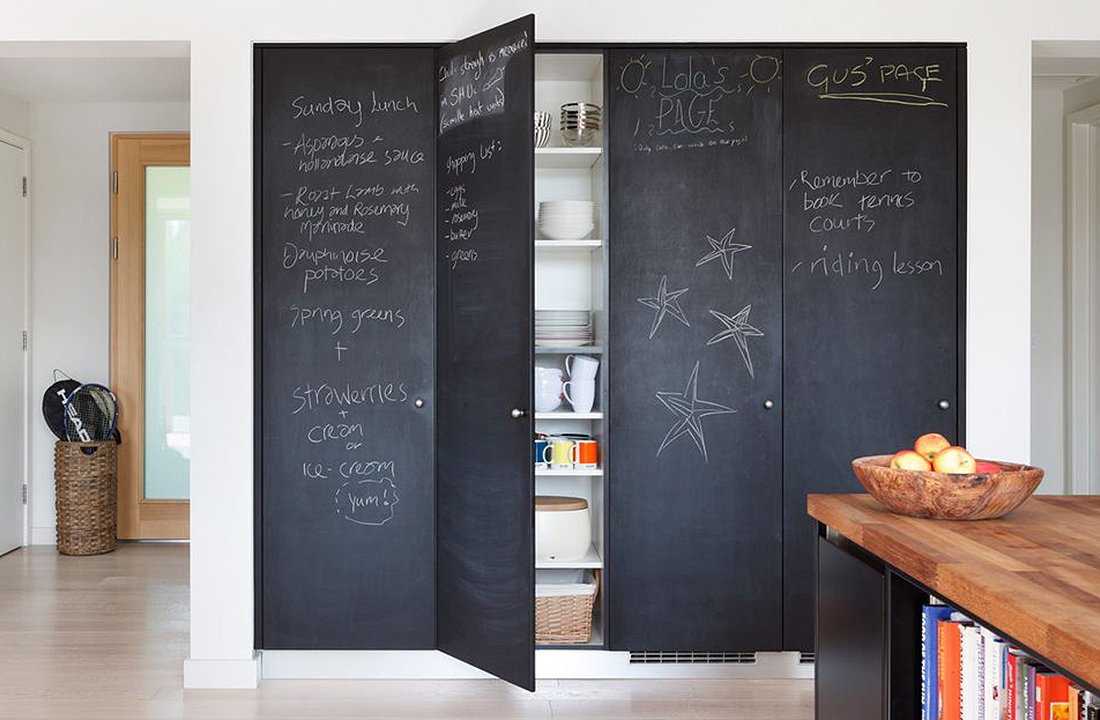 Sunday lunch
- Asparagus +
hollandaise sauce
- Roast Lamb with
honey and Rosemary
Marinade
Dauphinoise
potatoes
Spring greens
+
strawerries
+
cream
or
ice-cream
Yum!
Chilli strength is measured
in SHU.
(scoville heat units)
shopping list:
- eggs
- milk
- rosemary
- butter
- greens
Lola's
PAGE
GUS' PAGE
Remember to
book tennis
courts
riding lesson
HEAD